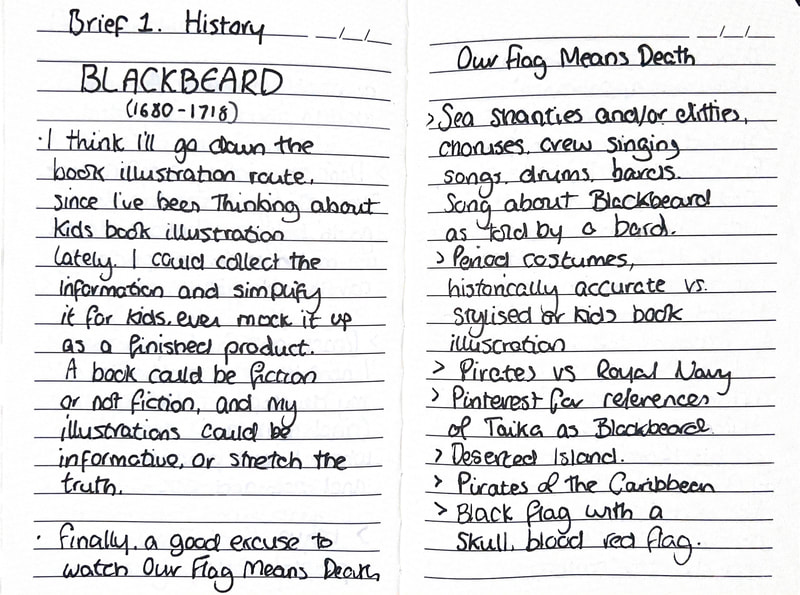 Brief 1. History
_/_/_
BLACKBEARD
(1680-1718)
· I think I'll go down the
book illustration route,
since I've been Thinking about
Kids book illustration
lately. I could collect the
information and simplify
it for kids, even mock it up
as a finished product.
A book could be fiction
or not fiction, and my
illustrations could be
informative, or stretch the
truth.
· Finally, a good excuse to
watch Our Flag Means Death
_/_/_
Our Flag Means Death
> Sea shanties and/or ditties,
choruses, crew singing
songs, drums, bards.
Song about Blackbeard
as told by a bard.
> Period costumes,
historically accurate vs.
stylised or kids book
illustration
> Pirates vs Royal Navy
> Pinterest for references
of Taika as Blackbeard
> Deserted Island.
> Pirates of the Caribbean
> Black flag with a
skull, blood red flag.